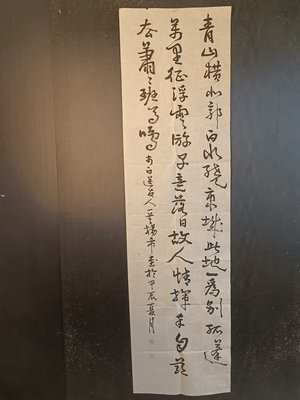 青山横北郭白水繞東城此地一為別孤蓬
萬里征浮雲游子意落日故人情揮手自茲
去蕭々班馬鳴 李白送友人一首 書於甲辰夏月